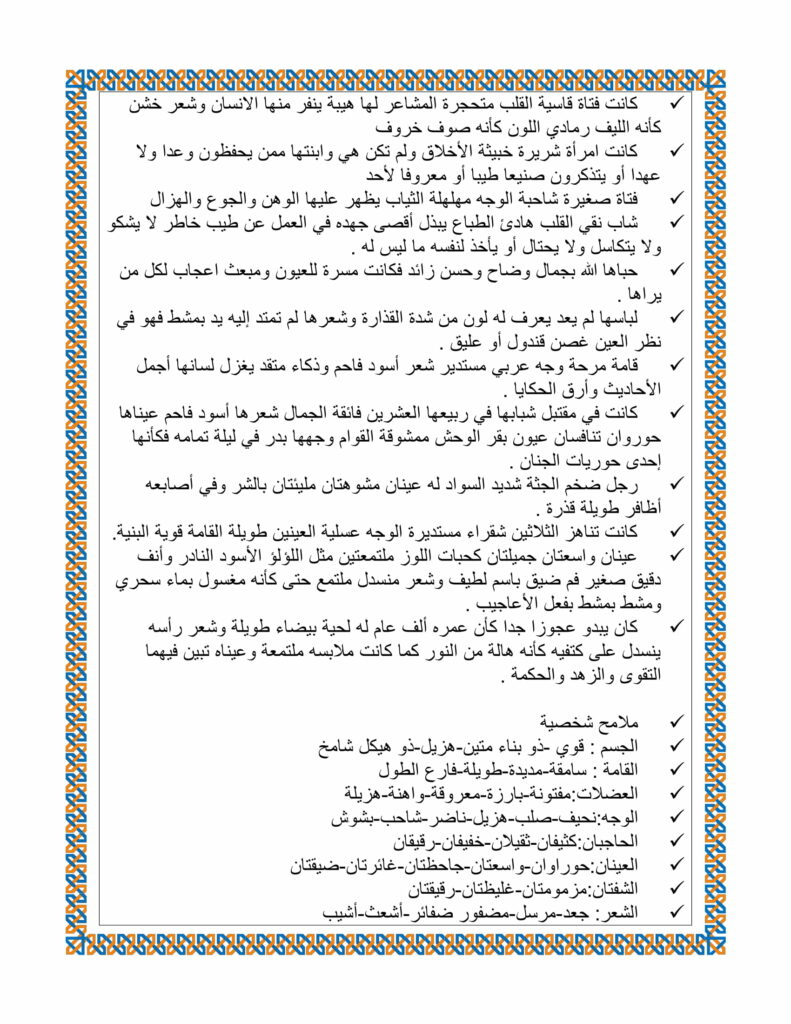 ✓ كانت فتاة قاسية القلب متحجرة المشاعر لها هيبة ينفر منها الانسان وشعر خشن
كأنه الليف رمادي اللون كأنه صوف خروف
✓ كانت امرأة شريرة خبيثة الأخلاق ولم تكن هي وابنتها ممن يحفظون وعدا ولا
عهدا أو يتذكرون صنيعا طيبا أو معروفا لأحد
✓ فتاة صغيرة شاحبة الوجه مهلهلة الثياب يظهر عليها الوهن والجوع والهزال
✓ شاب نقي القلب هادئ الطباع يبذل أقصى جهده في العمل عن طيب خاطر لا يشكو
ولا يتكاسل ولا يحتال أو يأخذ لنفسه ما ليس له .
✓ حباها الله بجمال وضاح وحسن زائد فكانت مسرة للعيون ومبعث اعجاب لكل من
يراها .
✓ لباسها لم يعد يعرف له لون من شدة القذارة وشعرها لم تمتد إليه يد بمشط فهو في
نظر العين غصن قندول أو عليق .
✓ قامة مرحة وجه عربي مستدير شعر أسود فاحم وذكاء متقد يغزل لسانها أجمل
الأحاديث وأرق الحكايا .
✓ كانت في مقتبل شبابها في ربيعها العشرين فائقة الجمال شعرها أسود فاحم عيناها
حوروان تنافسان عيون بقر الوحش ممشوقة القوام وجهها بدر في ليلة تمامه فكأنها
إحدى حوريات الجنان .
✓ رجل ضخم الجثة شديد السواد له عينان مشوهتان مليئتان بالشر وفي أصابعه
أظافر طويلة قذرة .
✓ كانت تناهز الثلاثين شقراء مستديرة الوجه عسلية العينين طويلة القامة قوية البنية.
✓ عينان واسعتان جميلتان كحبات اللوز ملتمعتين مثل اللؤلؤ الأسود النادر وأنف
دقيق صغير فم ضيق باسم لطيف وشعر منسدل ملتمع حتى كأنه مغسول بماء سحري
ومشط بمشط بفعل الأعاجيب .
✓ كان يبدو عجوزا جدا كأن عمره ألف عام له لحية بيضاء طويلة وشعر رأسه
ينسدل على كتفيه كأنه هالة من النور كما كانت ملابسه ملتمعة وعيناه تبين فيهما
التقوى والزهد والحكمة .
✓ ملامح شخصية
✓ الجسم : قوي -ذو بناء متين-هزيل-ذو هيكل شامخ
✓ القامة : سامقة-مديدة-طويلة-فارع الطول
✓ العضلات:مفتونة-بارزة-معروقة-واهنة-هزيلة
✓ الوجه:نحيف-صلب-هزيل-ناضر-شاحب-بشوش
✓ الحاجبان:كثيفان-ثقيلان-خفيفان-رقيقان
✓ العينان:حوراوان-واسعتان-جاحظتان-غائرتان-ضيقتان
✓ الشفتان:مزمومتان-غليظتان-رقيقتان
✓ الشعر: جعد-مرسل-مضفور ضفائر-أشعث-أشيب